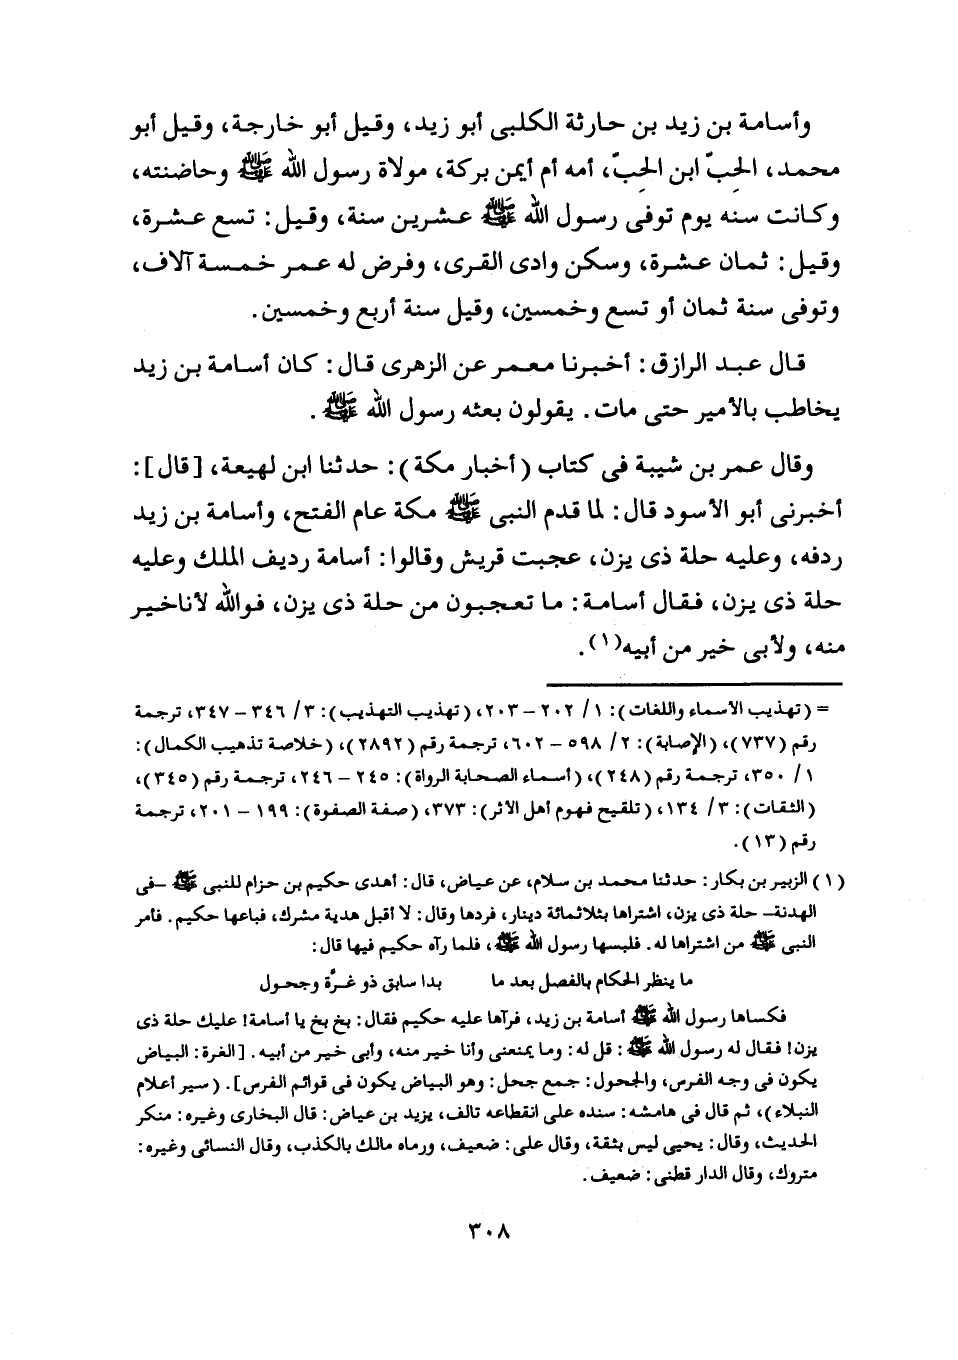 وأسامة بن زيد بن حارثة الكلبى أبو زيد، وقيل أبو خارجة، وقيل أبو
محمد، الحِبّ ابن الحِبّ، أمه أم أيمن بركة، مولاة رسول الله ﷺ وحاضنته،
وكانت سنه يوم توفى رسول الله ﷺ عشرين سنة، وقيل: تسع عشرة،
وقيل: ثمان عشرة، وسكن وادى القرى، وفرض له عمر خمسة آلاف،
وتوفى سنة ثمان أو تسع وخمسين، وقيل سنة أربع وخمسين.
قال عبد الرازق: أخبرنا معمر عن الزهرى قال: كان أسامة بن زيد
يخاطب بالأمير حتى مات. يقولون بعثه رسول الله ﷺ.
وقال عمر بن شيبة فى كتاب (أخبار مكة): حدثنا ابن لهيعة، [قال]:
أخبرنى أبو الأسود قال: لما قدم النبى ﷺ مكة عام الفتح، وأسامة بن زيد
ردفه، وعليه حلة ذى يزن، عجبت قريش وقالوا: أسامة رديف الملك وعليه
حلة ذى يزن، فقال أسامة: ما تعجبون من حلة ذى يزن، فوالله لأناخير
منه، ولأبى خير من أبيه(١).
= (تهذيب الأسماء واللغات): ١/ ٢٠٢ – ٢٠٣، (تهذيب التهذيب): ٣/ ٣٤٦ – ٣٤٧، ترجمة
رقم (٧٣٧)، (الإصابة): ٢/ ٥٩٨ – ٦٠٢، ترجمة رقم (٢٨٩٢)، (خلاصة تذهيب الكمال):
١/ ٣٥٠، ترجمة رقم (٢٤٨)، (أسماء الصحابة الرواة): ٢٤٥ – ٢٤٦، ترجمة رقم (٣٤٥)،
(الثقات): ٣/ ١٣٤، (تلقيح فهوم أهل الأثر): ٣٧٣، (صفة الصفوة): ١٩٩ – ٢٠١، ترجمة
رقم (١٣).
(١) الزبير بن بكار: حدثنا محمد بن سلام، عن عياض، قال: أهدى حكيم بن حزام للنبى ﷺ –فى
الهدنة– حلة ذى يزن، اشتراها بثلاثمائة دينار، فردها وقال: لا أقبل هدية مشرك، فباعها حكيم. فأمر
النبى ﷺ من اشتراها له. فلبسها رسول الله ﷺ، فلما رآه حكيم فيها قال:
ما ينظر الحكام بالفصل بعد ما بدا سابق ذو غرَّة وجحول
فكساها رسول الله ﷺ أسامة بن زيد، فرآها عليه حكيم فقال: بخ بخ يا أسامة! عليك حلة ذى
يزن! فقال له رسول الله ﷺ: قل له: وما يمنعنى وأنا خير منه، وأبى خير من أبيه. [الغرة: البياض
يكون فى وجه الفرس، والجحول: جمع جحل: وهو البياض يكون فى قوائم الفرس]. (سير أعلام
النبلاء)، ثم قال فى هامشه: سنده على انقطاعه تالف، يزيد بن عياض: قال البخارى وغيره: منكر
الحديث، وقال: يحيى ليس بثقة، وقال على: ضعيف، ورماه مالك بالكذب، وقال النسائى وغيره:
متروك، وقال الدار قطنى: ضعيف.
٣٠٨